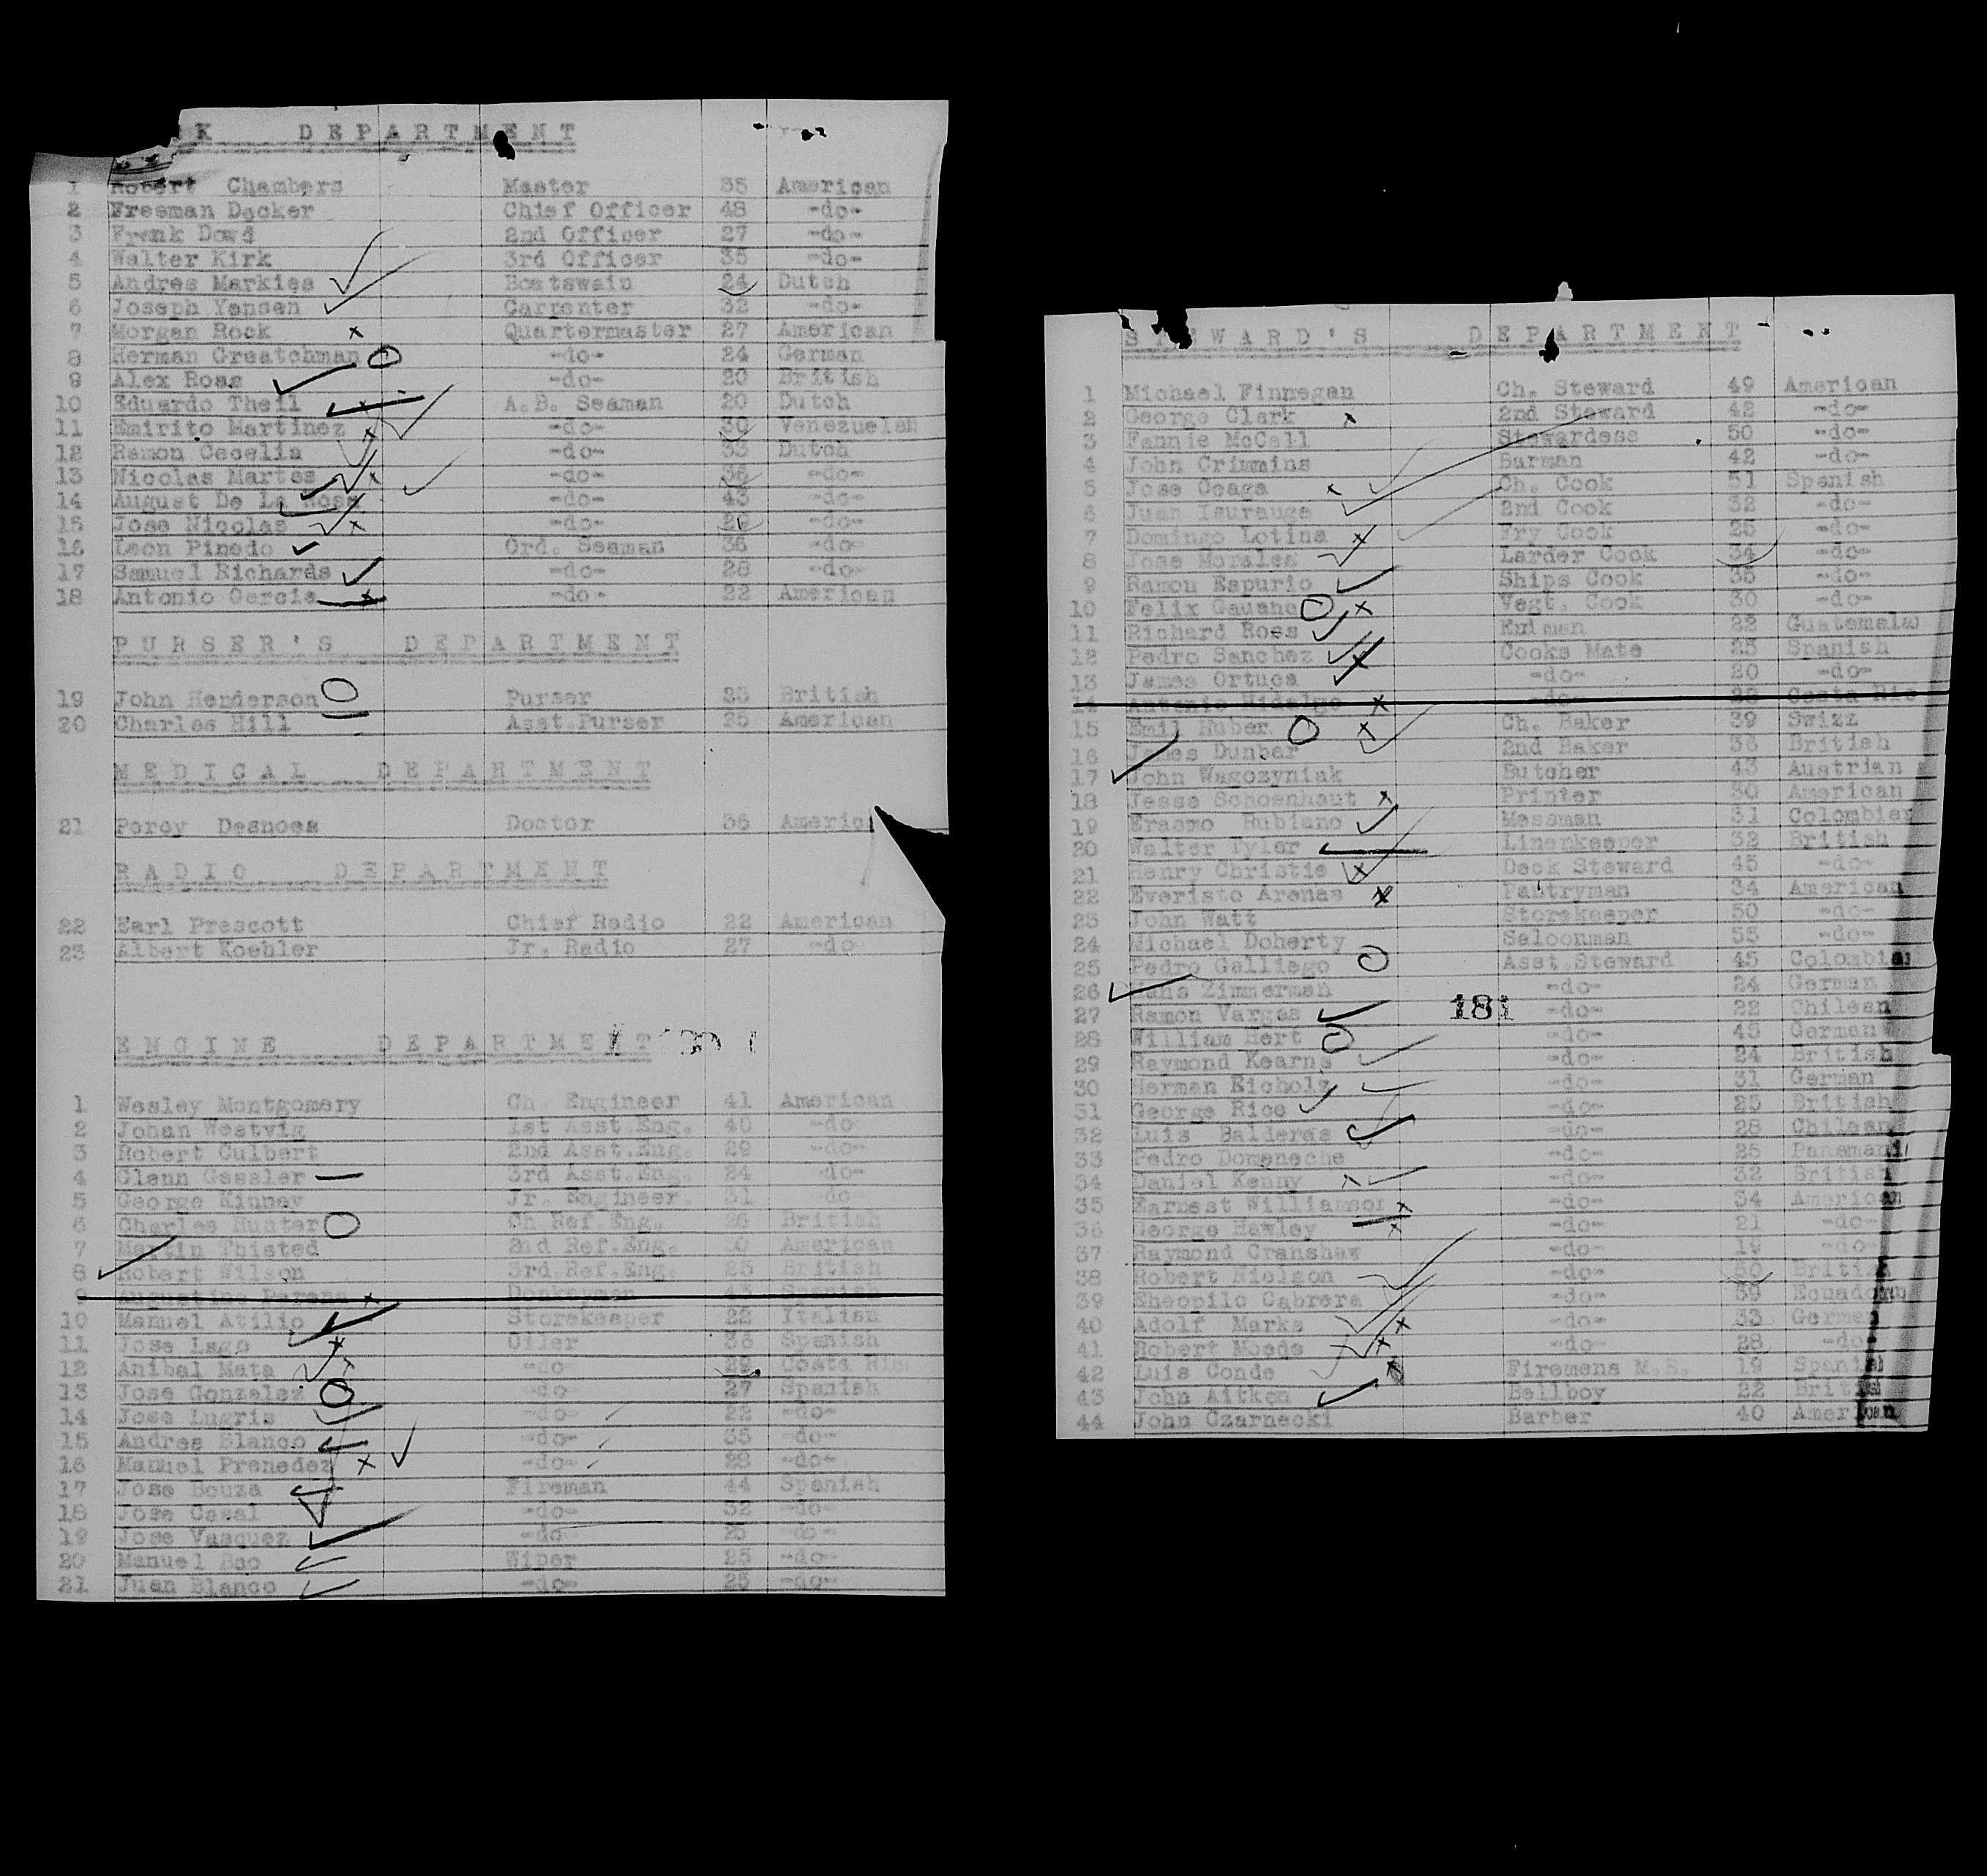 K DEPARTMENT
1 Robert Chambers Master 35 American
2 Freeman Decker Chief Officer 48 -do-
3 Frank Dowd 2nd Officer 27 -do-
4 Walter Kirk 3rd Officer 35 -do-
5 Andres Markies Boatswain 24 Dutch
6 Joseph Yensen Carpenter 32 -do-
7 Morgan Rock Quartermaster 27 American
8 Herman Greatchman -do- 24 German
9 Alex Ross -do- 20 British
10 Eduardo Theil A.B. Seaman 20 Dutch
11 Emirito Martinez -do- 30 Venezuelan
12 Ramon Cecelia -do- 33 Dutch
13 Nicolas Martes -do- 36 -do-
14 August De La Rosa -do- 43 -do-
15 Jose Nicolas -do- 29 -do-
16 Leon Pinedo Ord. Seaman 36 -do-
17 Samuel Richards -do- 28 -do-
18 Antonio Garcia -do- 22 American
PURSER'S DEPARTMENT
19 John Henderson Purser 35 British
20 Charles Hill Asst.Purser 25 American
MEDICAL DEPARTMENT
21 Percy Desnoes Doctor 36 Americ
RADIO DEPARTMENT
22 Earl Prescott Chief Radio 22 American
23 Albert Koehler Jr. Radio 27 -do
ENGINE DEPARTMENT
1 Wesley Montgomery Ch. Engineer 41 American
2 Johan Westvig 1st Asst.Eng. 40 -do
3 Robert Culbert 2nd Asst.Eng. 29 -do-
4 Glenn Gessler 3rd Asst.Eng. 24 do-
5 George Kinney Jr. Engineer. 31 do
6 Charles Hunter Ch Ref.Eng. 26 British
7 Martin Thisted 2nd Ref.Eng. American
8 Robert Wilson 3rd.Ref.Eng. 25 British
9 Augustine Parana Donkeyman 43 Spanish
10 Manuel Atilio Storekeeper 22 Italian
11 Jose Lago Oiler 36 Spanish
12 Anibal Mata -do 29 Costa Ric
13 Jose Gonzalez -do 27 Spanish
14 Jose Lugris -do- 22 -do-
15 Andres Blanco -do- 35 -do-
16 Manuel Prenedez -do- 28 -do-
17 Jose Bouza Fireman 44 Spanish
18 Jose Casal -do- 32 -do-
19 Jose Vasquez -do 25 -do-
20 Manuel Boo Wiper 25 -do-
21 Juan Blanco -do- 25 -do-
STEWARD'S DEPARTMENT
1 Michael Finnegan Ch. Steward 49 American
2 George Clark 2nd Steward 42 -do-
3 Fannie McCall Stewardess 50 -do-
4 John Crimmins Barman 42 -do-
5 Jose Ocaga Ch. Cook 51 Spanish
6 Juan Isurauga 2nd Cook 32 -do-
7 Domingo Lotina Fry Cook 25 -do-
8 Jose Morales Larder Cook 34 -do-
9 Ramon Espurio Ships Cook 35 -do-
10 Felix Gauana Vegt. Cook 30 -do-
11 Richard Ross 22 Guatemala
12 Pedro Sanchez Cooks Mate 23 Spanish
13 James Ortuga -do- 20 -do-
14 Antonio Hidalgo -do- 29 Costa Ric
15 Emil Huber Ch. Baker 39 Swizz
16 James Dunbar 2nd Baker 36 British
17 John Wagozyniak Butcher 43 Austrian
18 Jesse Schoenhaut Printer 30 American
19 Erasmo Rubiano Messman 31 Colombian
20 Walter Tyler Linenkeeper 32 British
21 Henry Christie Deck Steward 45 -do-
22 Everisto Arenas Pantryman 34 American
23 John Watt Storekeeper 50 -do-
24 Michael Doherty Saloonman 55 -do-
25 Pedro Galliego Asst.Steward 45 Colombian
26 Hans Zimmerman -do- 24 German
27 Ramon Vargas -do- 22 Chilean
181
28 William Hert -do- 45 German
29 Raymond Kearns -do- 24 British
30 Herman Eicholz -do- 31 German
31 George Rice -do- 25 British
32 Luis Balderas -do- 28 Chilean
33 Pedro Domeneche -do- 25 Panamani
34 Daniel Kenny -do- 32 British
35 Earnest Williamson -do- 34 American
36 George Hawley -do- 21 -do-
37 Raymond Cranshaw -do- 19 -do
38 Robert Nielson -do- 50 British
39 Sheopilo Cabrera -do- 39 Ecuadoru
40 Adolf Marks -do- 33 German
41 Robert Moede -do- 28 -do
42 Luis Conde Firemens M.B. 19 Spanish
43 John Aitken Bellboy 22 British
44 John Czarnecki Barber 40 American